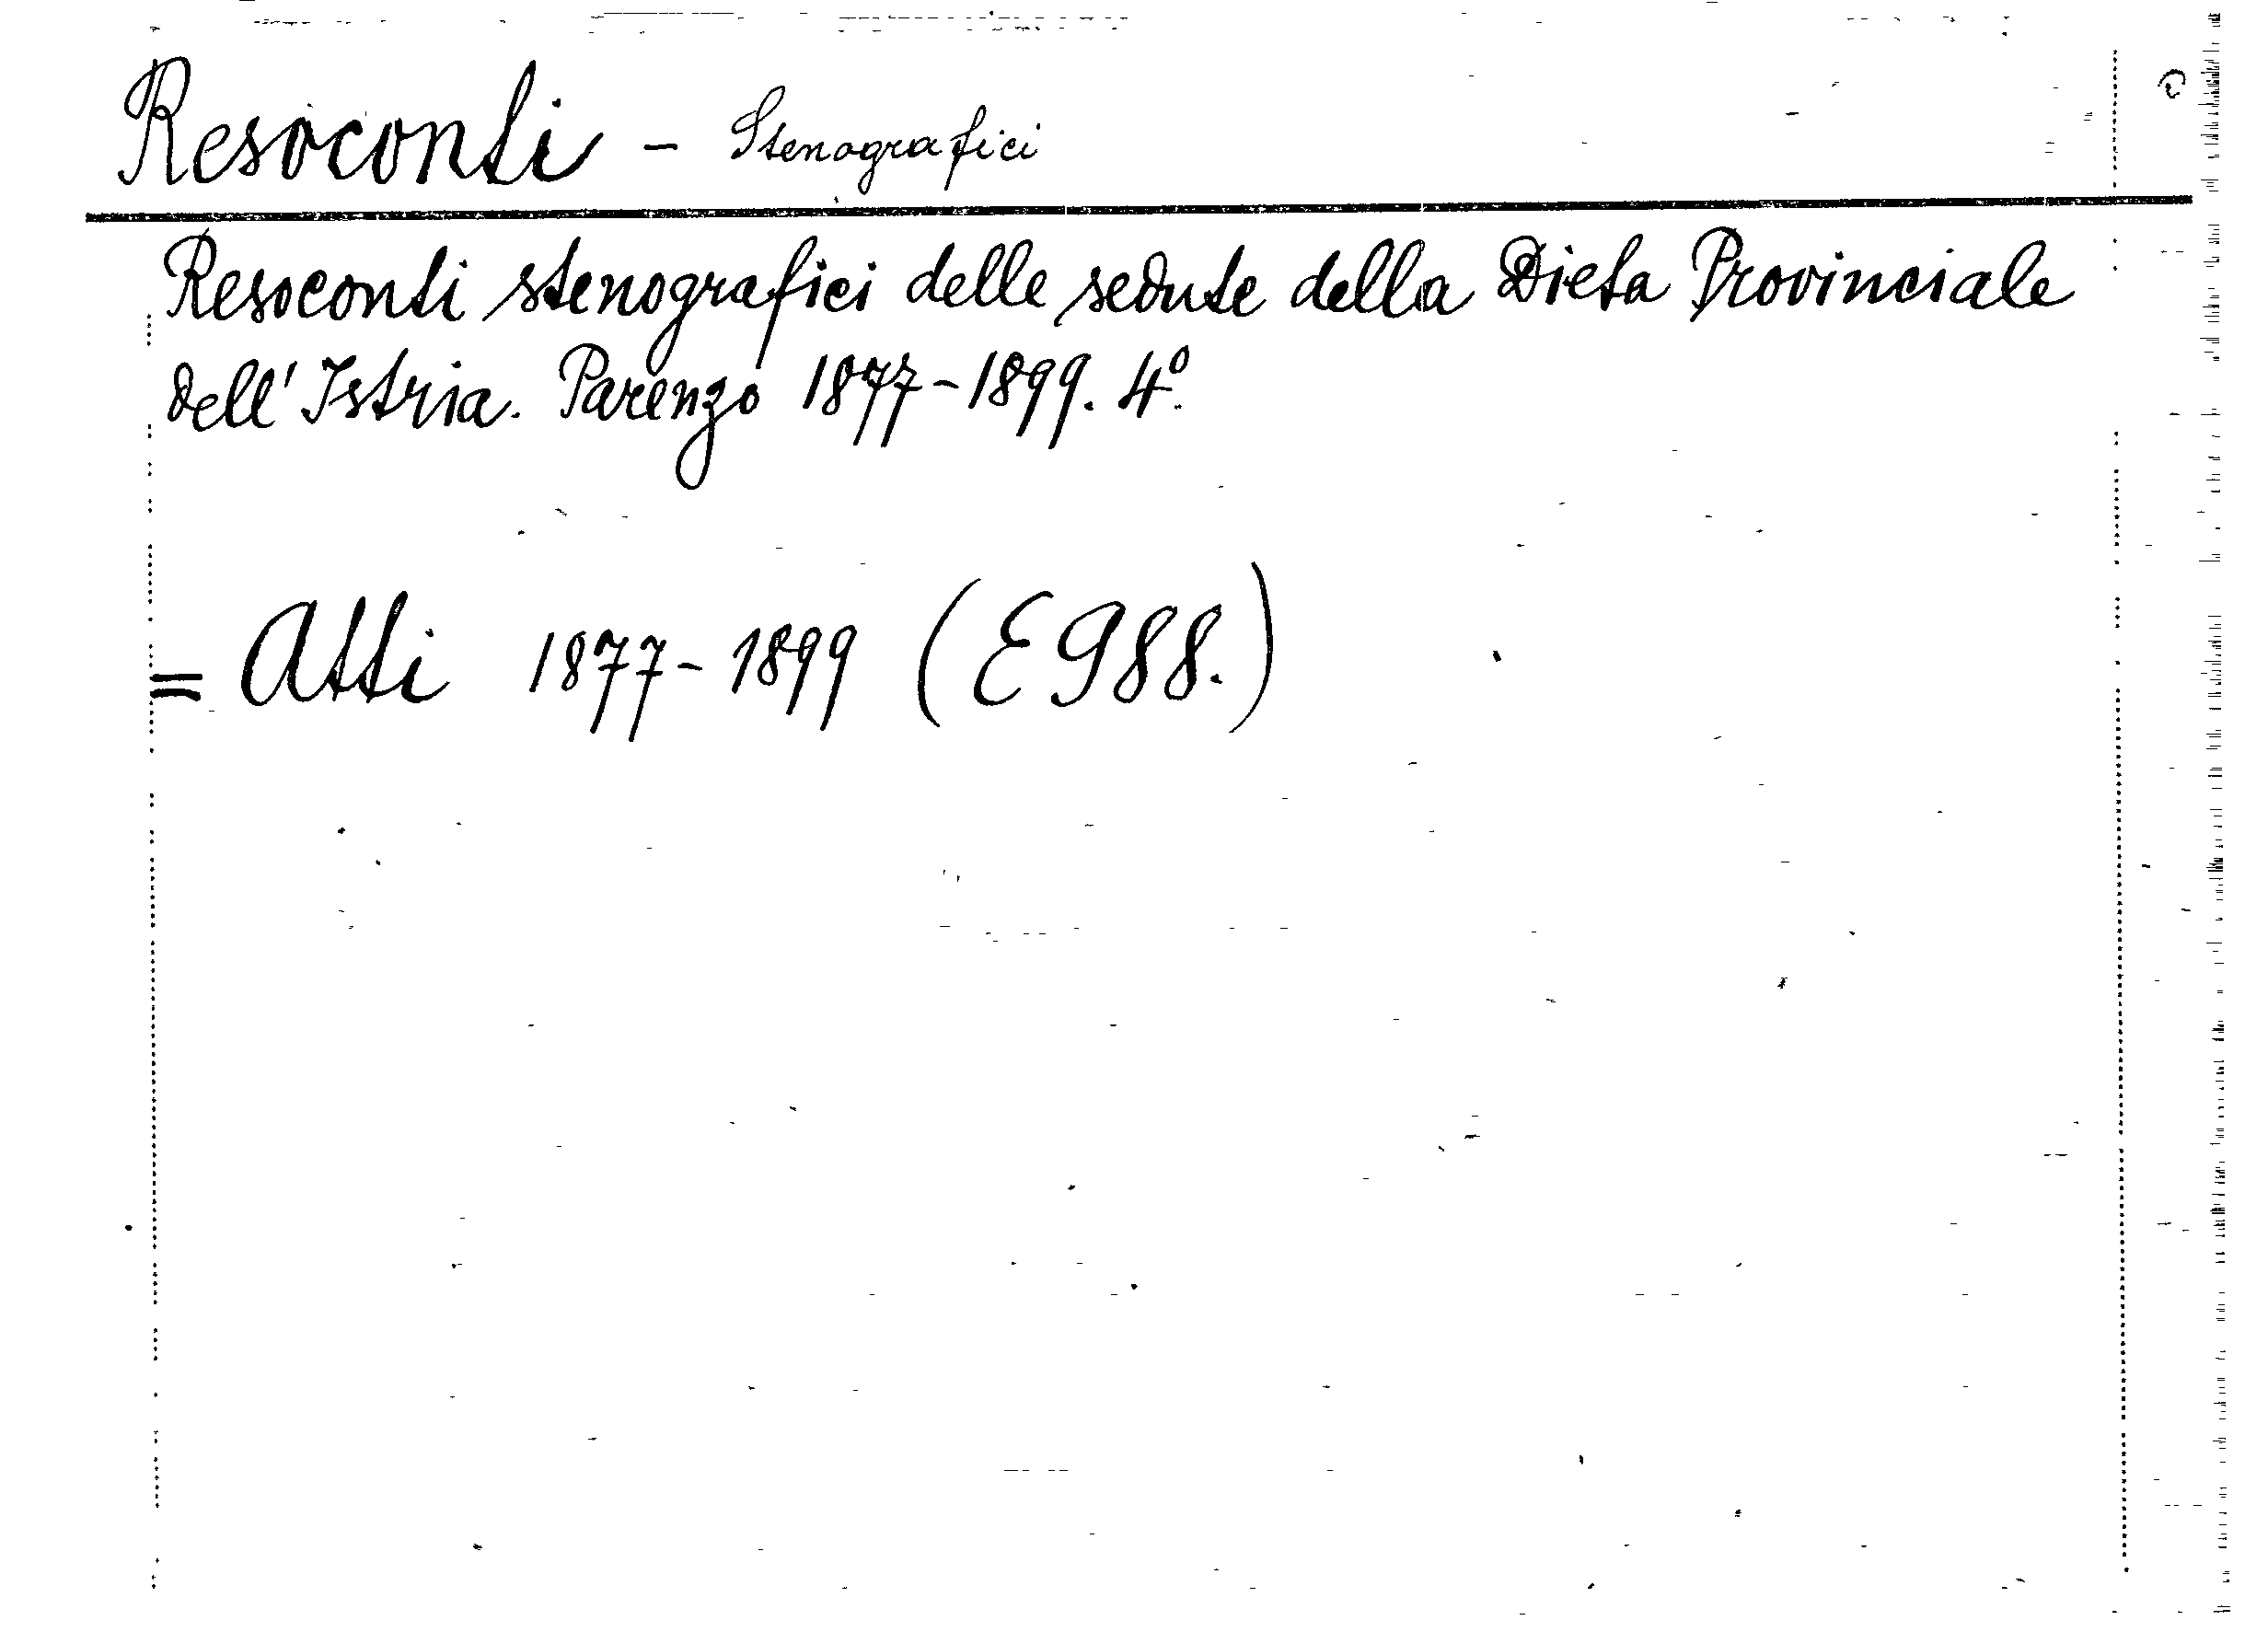 Resoconti - Stenografici
Resoconti stenografici delle sedute della Dieta Provinciale
dell' Istria. Parenzo 1877-1899. 4º.
= Atti 1877-1899 (E 988.)